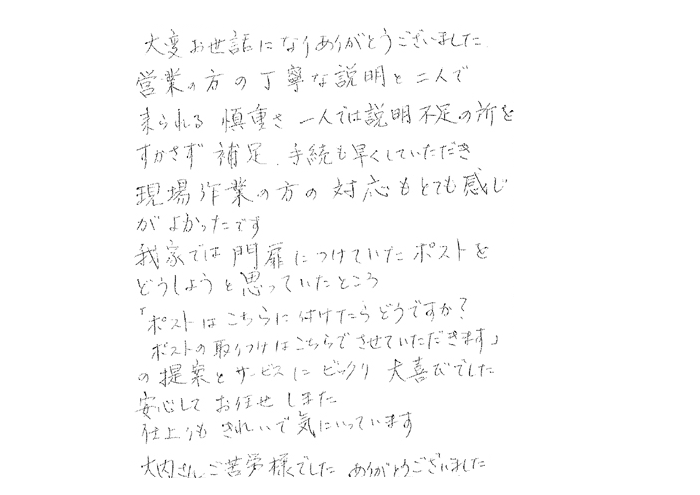 大変お世話になりありがとうございました
営業の方の丁寧な説明と二人で
来られる慎重さ 一人では説明不足の所を
すかさず補足、手続も早くしていただき
現場作業の方の対応もとても感じ
がよかったです
我家では門扉につけていたポストを
どうしようと思っていたところ
「ポストはこちらに付けたらどうですか？
ポストの取りつけはこちらでさせていただきます」
の提案とサービスにビックリ 大喜びでした
安心してお任せしました
仕上りもきれいで気にいっています
大内さんご苦労様でした ありがとうございました